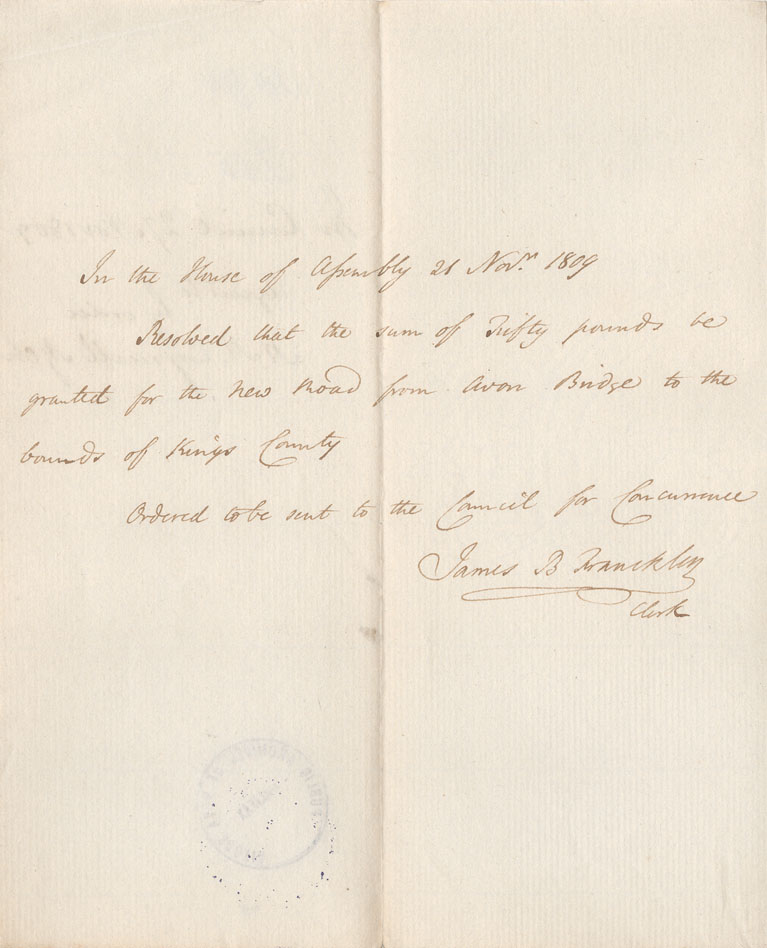 In the House of Assembly 21 Novr. 1809
Resolved that the sum of Fifty pounds be
granted for the New Road from Avon Bridge to the
bounds of Kings County
Ordered to be sent to the Council for Concurrence
James B Franckley
Clerk